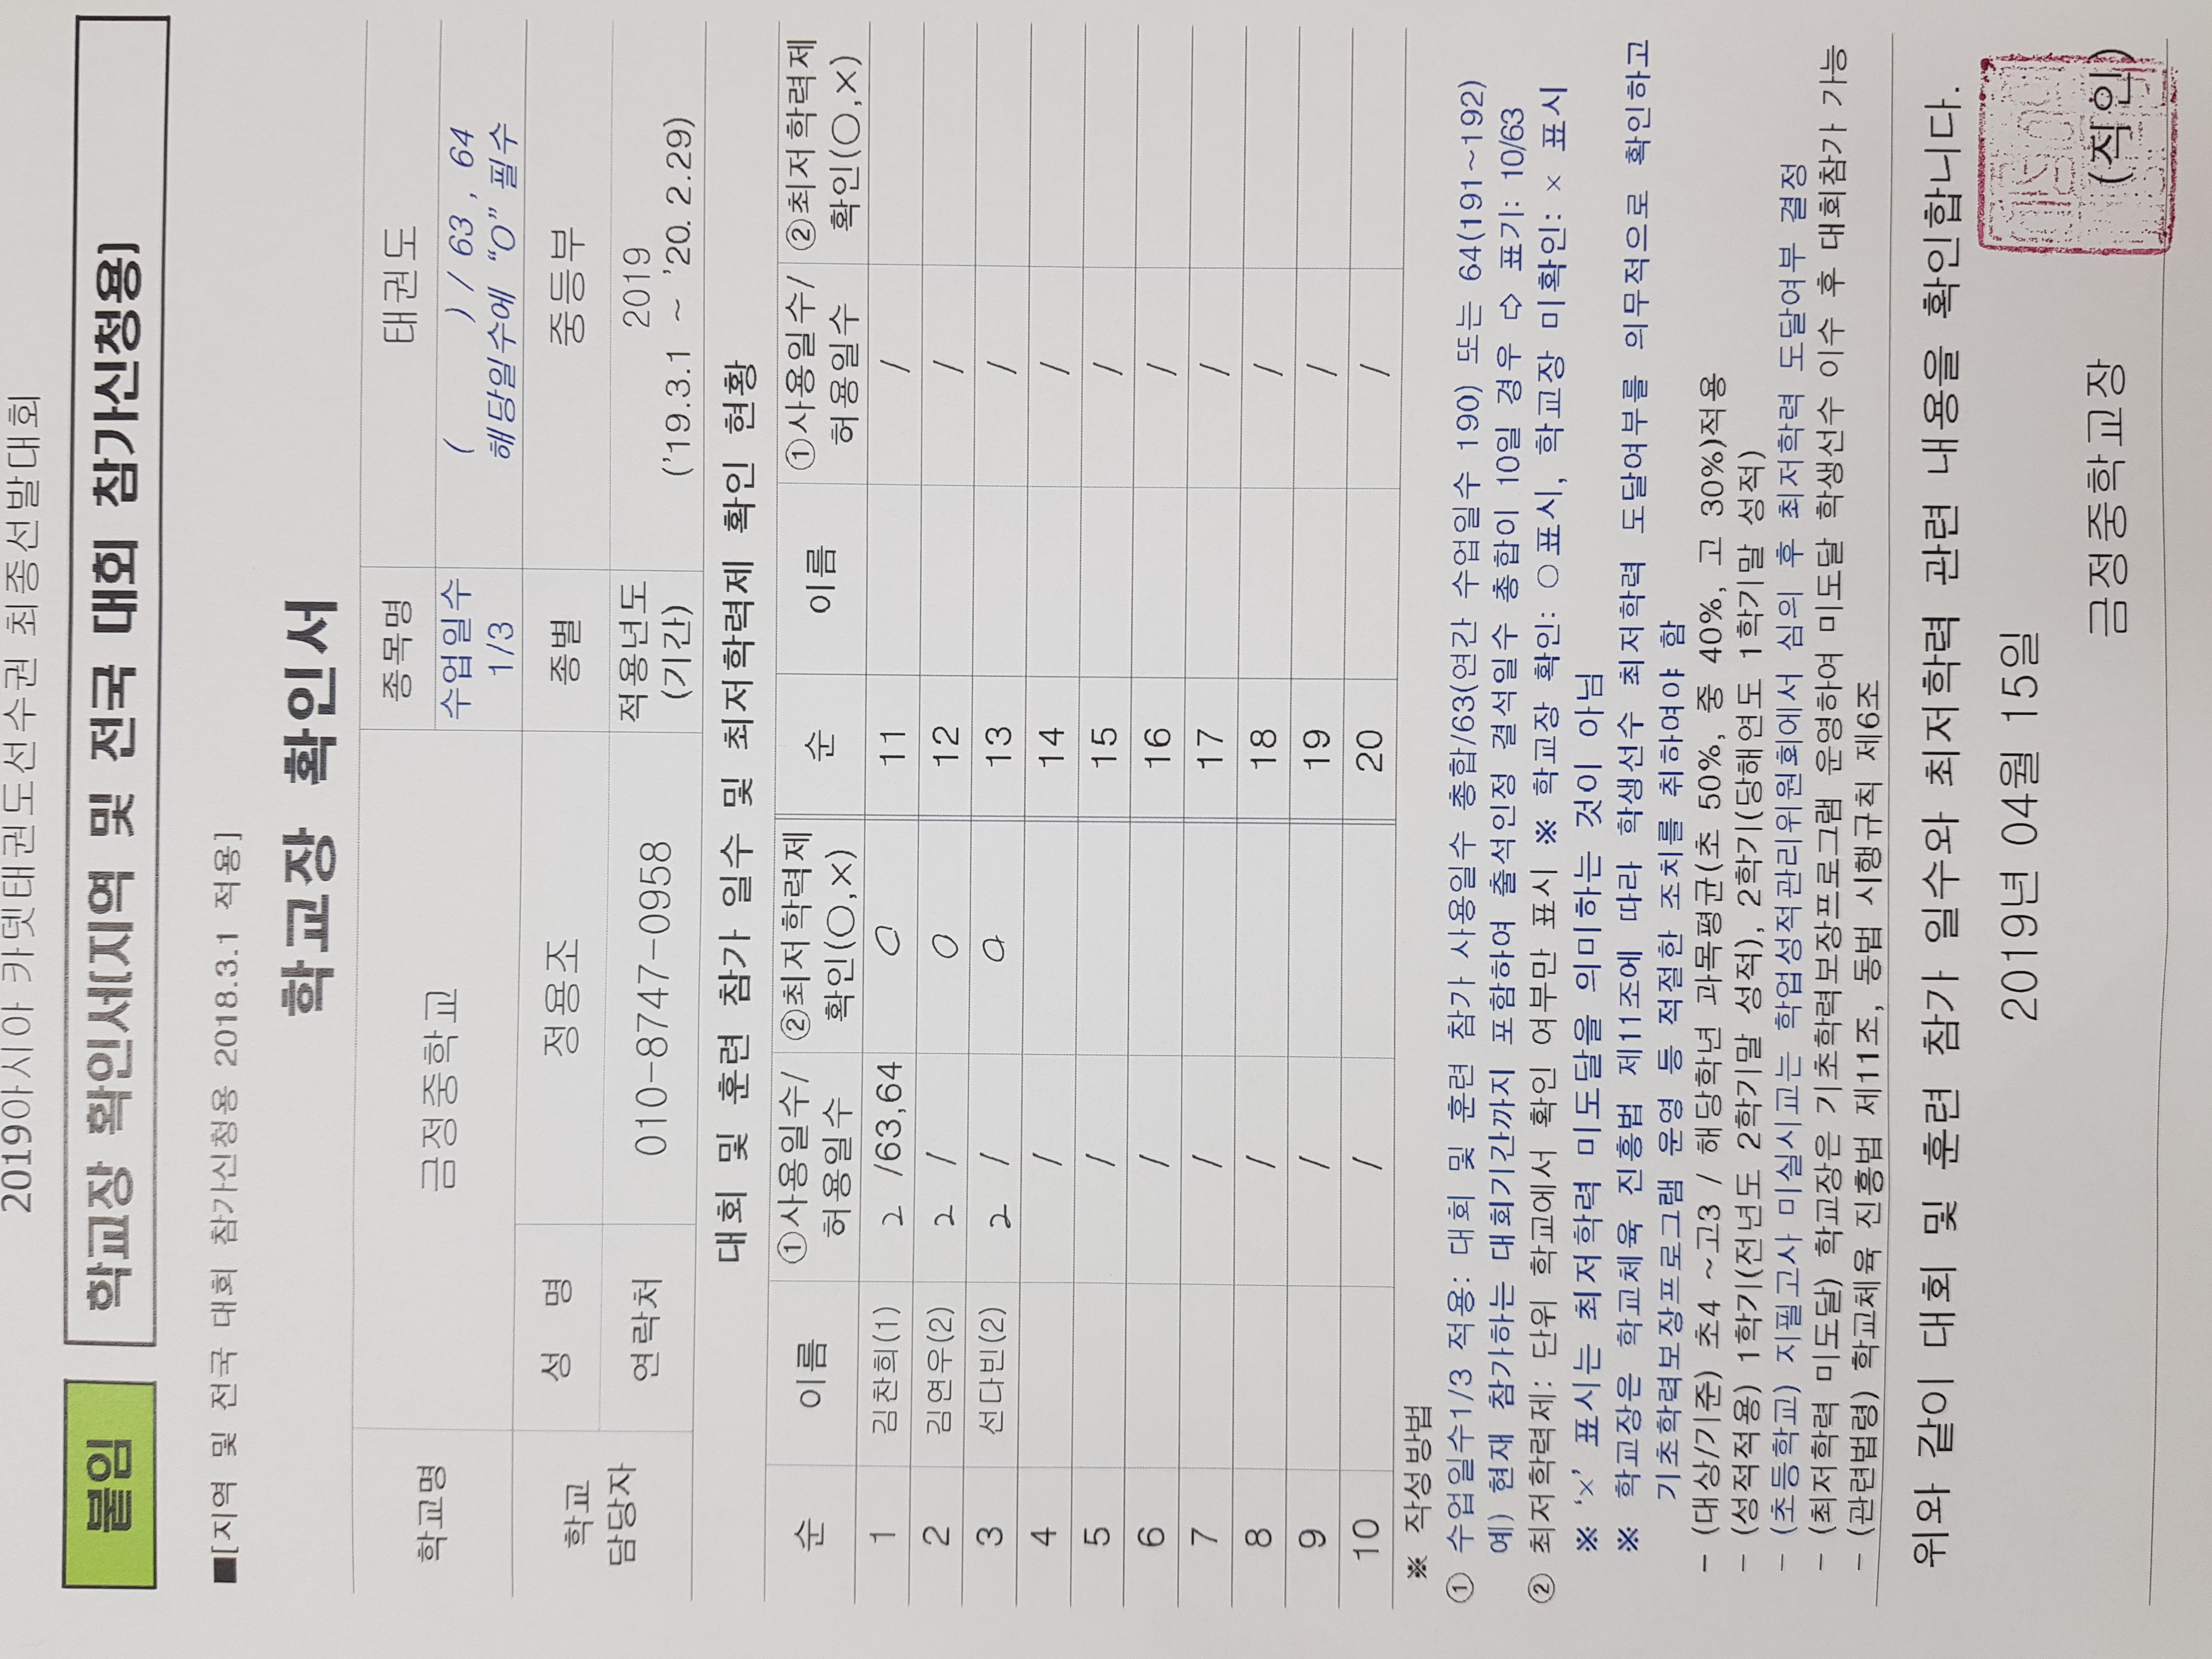 2019아시아 카뎃태권도선수권 최종선발대회
붙임 학교장 확인서(지역 및 전국 대회 참가신청용)
■[지역 및 전국 대회 참가신청용 2018.3.1 적용]
학교장 확인서
학교명 금정중학교 종목명 태권도
수업일수 1/3 ( ) / 63 , 64
해당일수에 “O” 필수
학교 담당자 성 명 정용조 종별 중등부
연락처 010-8747-0958 적용년도 (기간) 2019
('19.3.1 ~ '20. 2.29)
대회 및 훈련 참가 일수 및 최저학력제 확인 현황
순 이름 ①사용일수/허용일수 ②최저학력제 확인(○,×) 순 이름 ①사용일수/허용일수 ②최저학력제 확인(○,×)
1 김찬희(1) 2 /63,64 O 11 /
2 김연우(2) 2 / O 12 /
3 선다빈(2) 2 / O 13 /
4 / 14 /
5 / 15 /
6 / 16 /
7 / 17 /
8 / 18 /
9 / 19 /
10 / 20 /
※ 작성방법
① 수업일수1/3 적용: 대회 및 훈련 참가 사용일수 총합/63(연간 수업일수 190) 또는 64(191~192)
예) 현재 참가하는 대회기간까지 포함하여 출석인정 결석일수 총합이 10일 경우 ⇨ 표기: 10/63
② 최저학력제: 단위 학교에서 확인 여부만 표시 ※ 학교장 확인: ○표시, 학교장 미확인: × 표시
※ ‘×’ 표시는 최저학력 미도달을 의미하는 것이 아님
※ 학교장은 학교체육 진흥법 제11조에 따라 학생선수 최저학력 도달여부를 의무적으로 확인하고
기초학력보장프로그램 운영 등 적절한 조치를 취하여야 함
- (대상/기준) 초4 ~고3 / 해당학년 과목평균(초 50%, 중 40%, 고 30%)적용
- (성적적용) 1학기(전년도 2학기말 성적), 2학기(당해연도 1학기말 성적)
- (초등학교) 지필고사 미실시교는 학업성적관리위원회에서 심의 후 최저학력 도달여부 결정
- (최저학력 미도달) 학교장은 기초학력보장프로그램 운영하여 미도달 학생선수 이수 후 대회참가 가능
- (관련법령) 학교체육 진흥법 제11조, 동법 시행규칙 제6조
위와 같이 대회 및 훈련 참가 일수와 최저학력 관련 내용을 확인합니다.
2019년 04월 15일
금정중학교장 (직인)